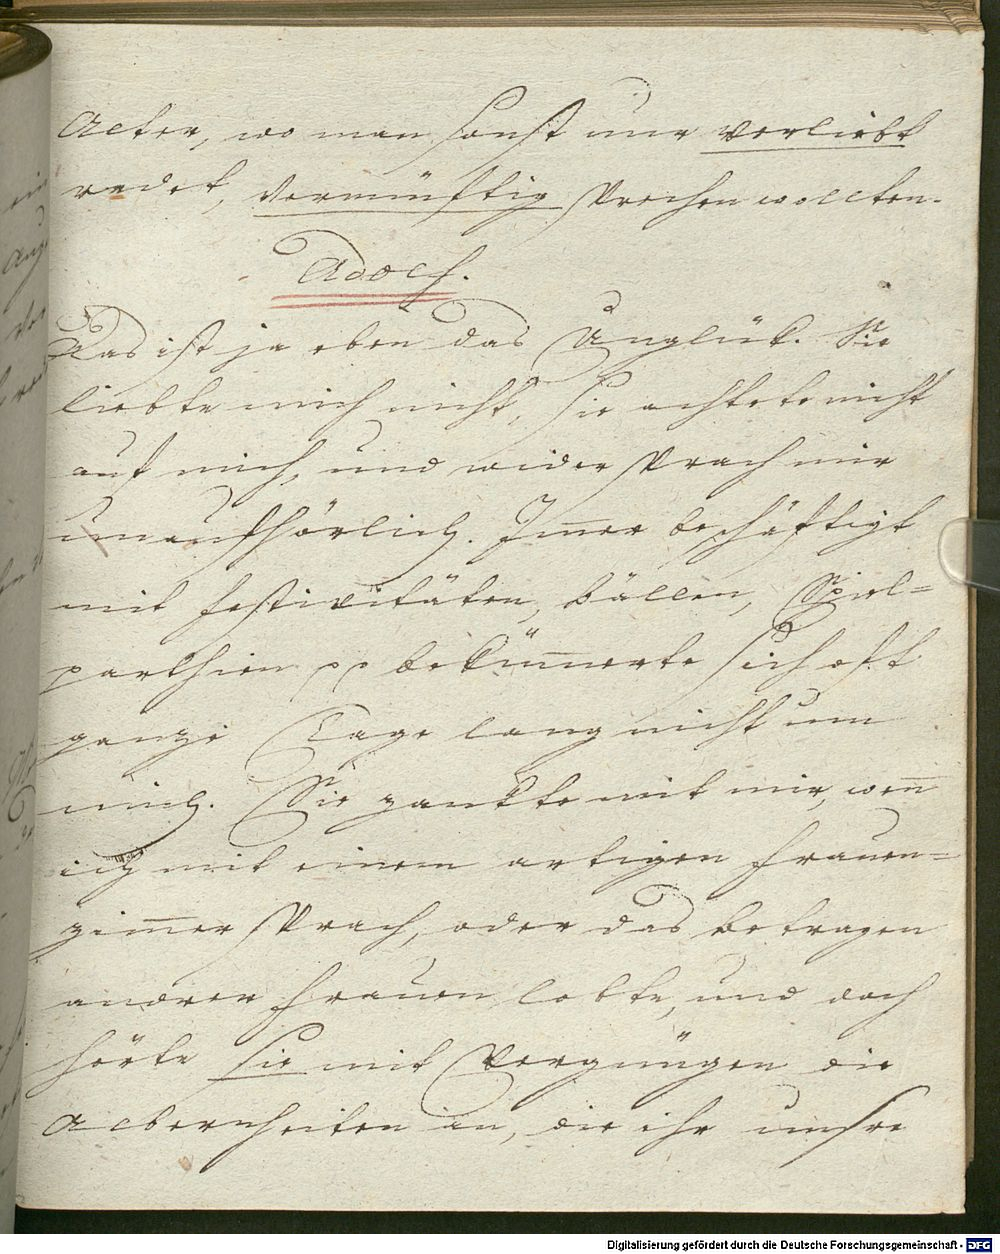 Alter, wo man sonst nur verliebt
redet, vernünftig sprechen wollten.
Adolf.
Das ist ja eben das Unglük. Sie
liebte mich nicht, sie achtete nicht
auf mich, und widersprach mir
unaufhörlich. Im̄er beschäftigt
mit Festivitäten, Bällen, Spiel=
parthien pp beküm̄erte sich oft
ganze Tage lang nicht um
mich. Sie zankte mit mir, wen̄
ich mit einem artigen Frauen=
zim̄er sprach, oder das Betragen
andrer Frauen lobte, und doch
hörte sie mit Vergnügen die
Albernheiten an, die ihr unsre
Digitalisierung gefördert durch die Deutsche Forschungsgemeinschaft - DFG